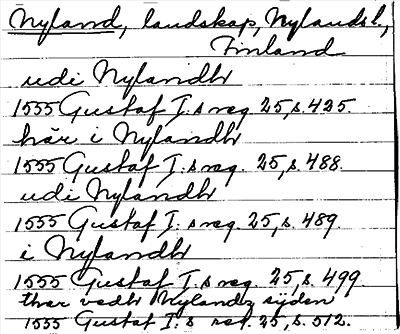 Nyland, landskap, Nylands l.,
Finland
udi Nylandh
1555 Gustaf I:s reg. 25, s. 425.
här i Nylandh
1555 Gustaf I:s reg. 25, s. 488.
udi Nylandh
1555 Gustaf I:s reg. 25, s. 489.
i Nylandh
1555 Gustaf I:s reg. 25, s. 499
thär vedh Nylandz sijden
1555 Gustaf I:s reg. 25, s. 512.